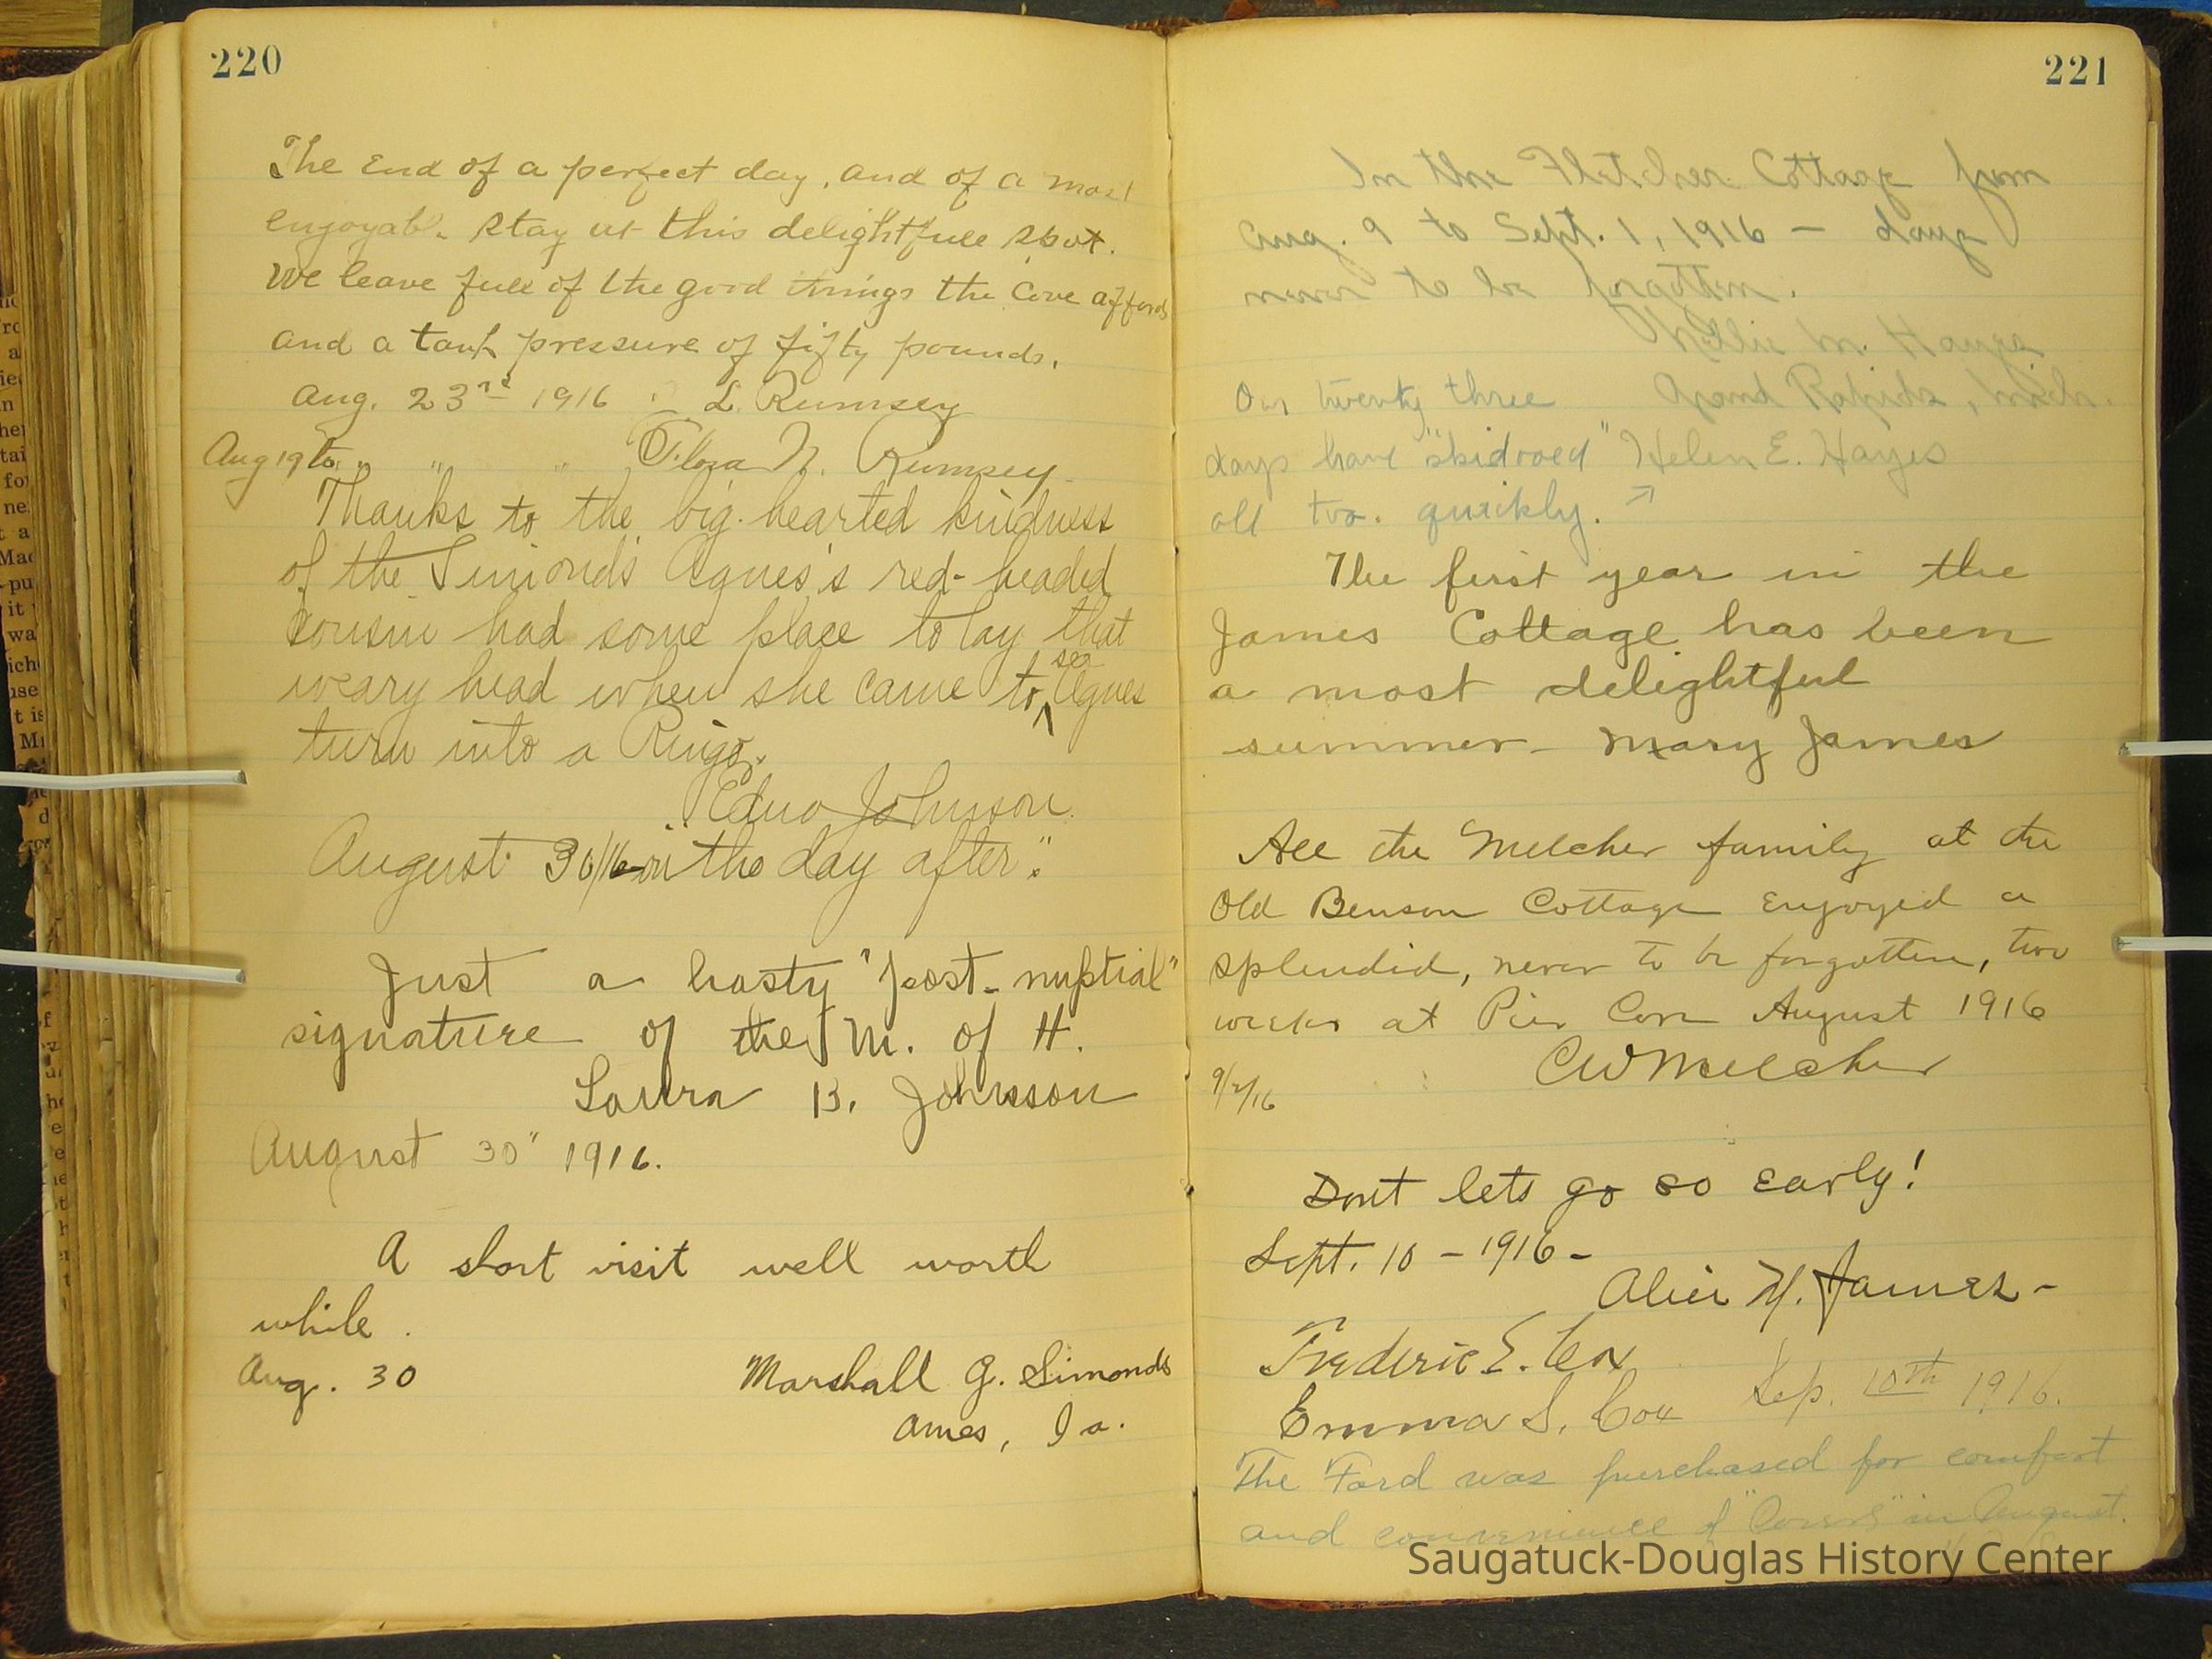 220
The End of a perfect day, and of a most
enjoyable stay at this delightfull spot.
We leave full of the good things the Cove affords
and a tank pressure of fifty pounds.
Aug. 23rd 1916 L. Rumsey
Aug 19 to " " " Flora N. Rumsey
Thanks to the big-hearted kindness
of the Simonds Agnes's red-headed
cousin had some place to lay that
weary head when she came to see Agnes
turn into a Ringo.
Edna Johnson
August 30/16 - or "the day after".
Just a hasty "post-nuptial"
signature of the M. of H.
Laura B. Johnson
August 30" 1916.
A short visit well worth
while.
Aug. 30 Marshall G. Simonds
Ames, Ia.
221
In the Fletcher Cottage from
Aug. 9 to Sept. 1, 1916 — days
never to be forgotten.
Nellie M. Hayes
Grand Rapids, Mich.
Our twenty three
days have "skidooed"
all too quickly. Helen E. Hayes
The first year in the
James Cottage has been
a most delightful
summer - Mary James
All the Melcher family at the
Old Benson Cottage enjoyed a
splendid, never to be forgotten, two
weeks at Pier Cove August 1916
CW Melcher
9/2/16
Dont lets go so early!
Sept. 10 - 1916 -
Alice Y. James -
Frederic E. Cox
Emma S. Cox Sep. 10th 1916.
The Ford was purchased for comfort
and convenience of "Covers" in August.
Saugatuck-Douglas History Center